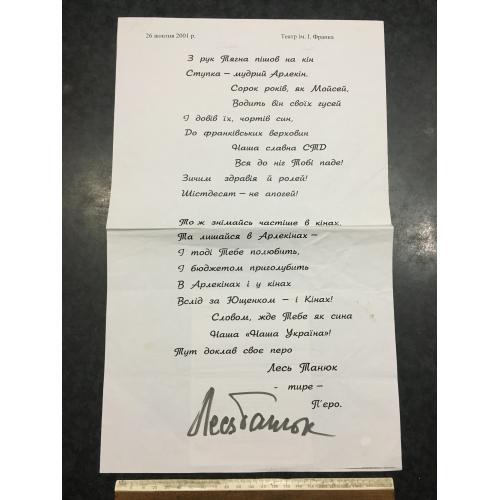 26 жовтня 2001 р. Театр ім. І. Франка
З рук Тягна пішов на кін
Ступка – мудрий Арлекін.
Сорок років, як Мойсей,
Водить він своїх гусей
І довів їх, чортів син,
До франківських верховин
Наша славна СТД
Вся до ніг Тобі паде!
Зичим здравія й ролей!
Шістдесят – не апогей!
То ж знімайсь частіше в кінах,
Та лишайся в Арлекінах –
І тоді Тебе полюбить,
І бюджетом приголубить
В Арлекінах і у кінах
Вслід за Ющенком – і Кінах!
Словом, жде Тебе як сина
Наша «Наша Україна»!
Тут доклав своє перо
Лесь Танюк
- тире –
П'єро.
Лесь Танюк